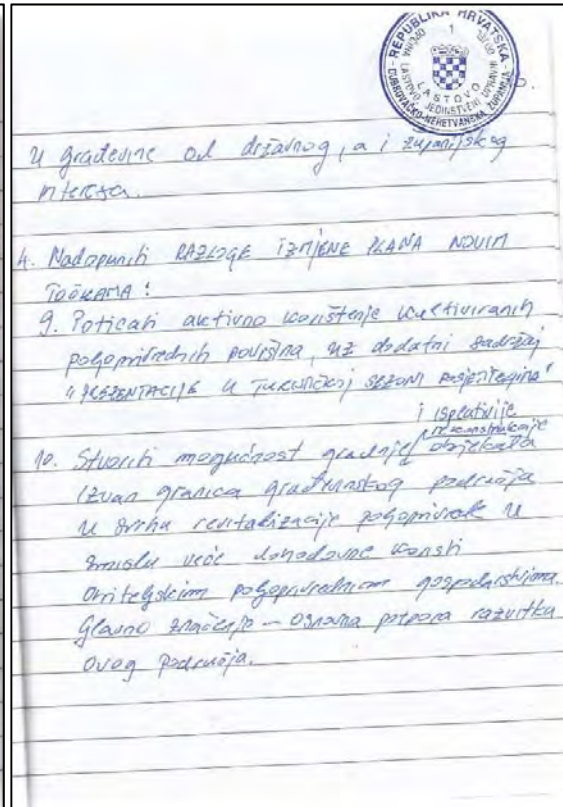 REPUBLIKA HRVATSKA
1
DUBROVAČKO-NERETVANSKA ŽUPANIJA
OPĆINA LASTOVO
JEDINSTVENI UPRAVNI
LASTOVO
u građevine od državnog, a i županijskog
interesa.
4. Nadopuniti RAZLOGE IZMJENE PLANA NOVIM
TOČKAMA:
9. Poticati aktivno korištenje kultiviranih
poljoprivrednih površina, uz dodatni sadržaj
"PREZENTACIJE U TURISTIČKOJ SEZONI posjetiteljima"
i isplativije
rekonstrukcije
10. Stvoriti mogućnost gradnje objekata
izvan granica građevinskog područja
u svrhu revitalizacije poljoprivrede u
smislu veće dohodovne koristi
obiteljskim poljoprivrednim gospodarstvima.
Glavno značenje – osnovna potpora razvitka
ovog područja.